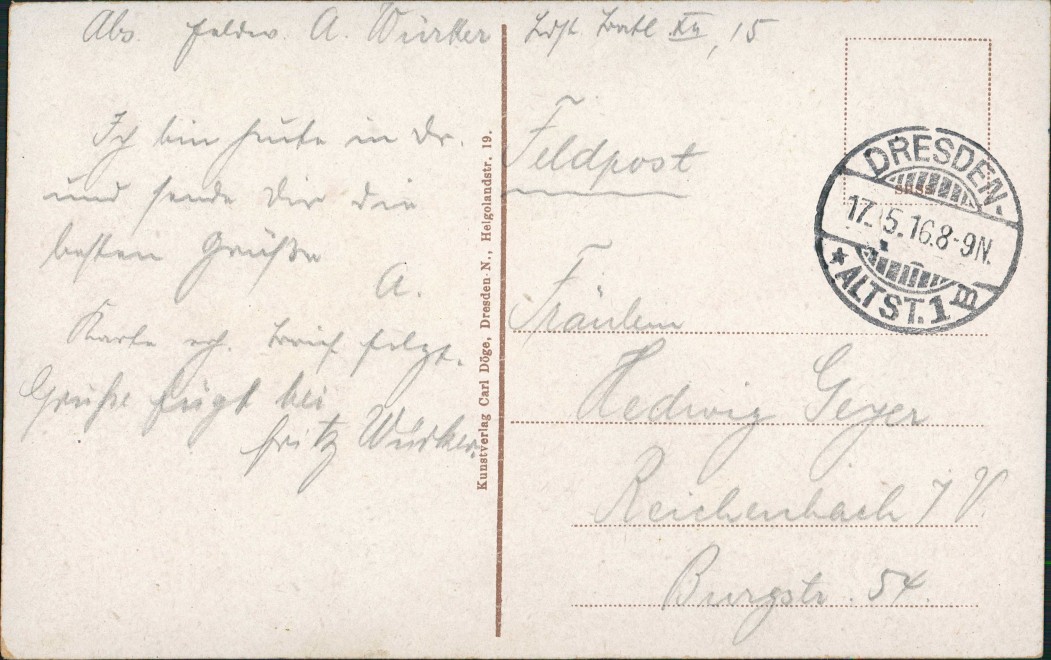 Abs. Feldw. A. Würker Ldst. Batl. XII, 15
Ich bin heute in Dr.
und sende Dir die
besten Grüße
A.
Karte erh. Brief folgt.
Grüße fügt bei
Fritz Würker.
Kunstverlag Carl Döge, Dresden-N., Helgolandstr. 19.
Feldpost
DRESDEN-
17. 5. 16. 8-9 N.
* ALTST. 1 B
Fräulein
Hedwig Geyer
Reichenbach i/V.
Burgstr. 54.